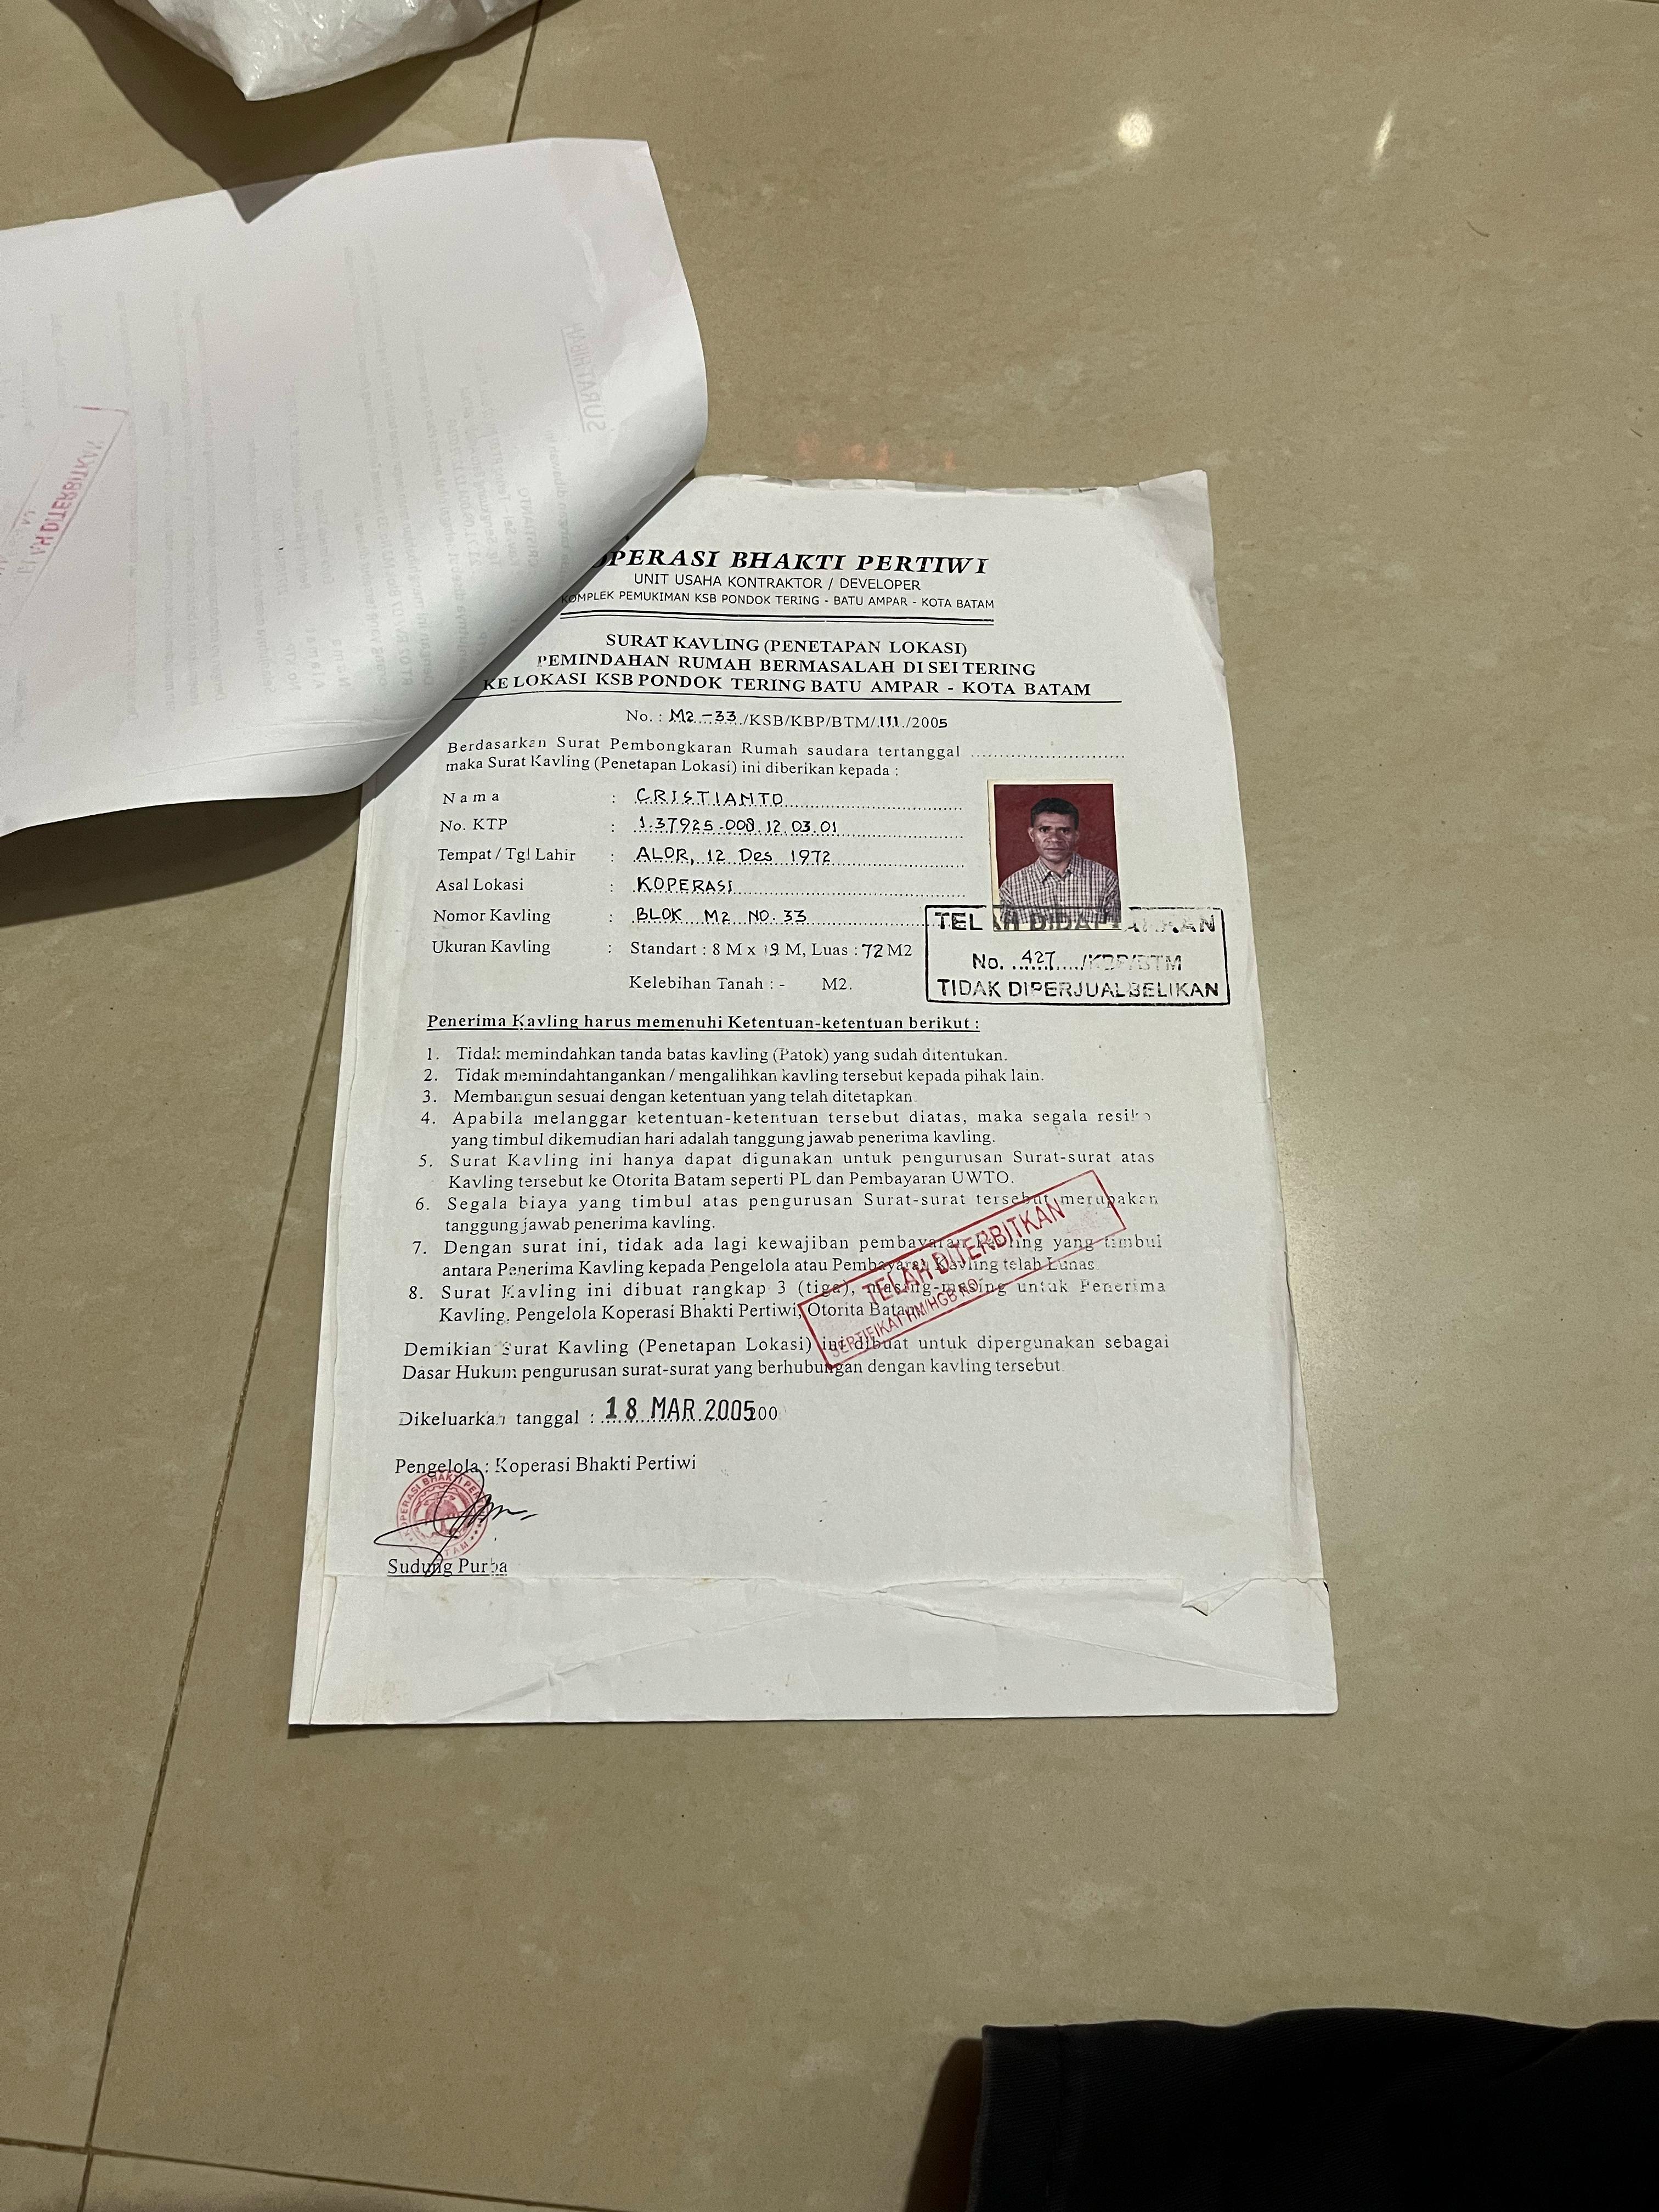 OPERASI BHAKTI PERTIWI
UNIT USAHA KONTRAKTOR / DEVELOPER
KOMPLEK PEMUKIMAN KSB PONDOK TERING - BATU AMPAR - KOTA BATAM
SURAT KAVLING (PENETAPAN LOKASI)
PEMINDAHAN RUMAH BERMASALAH DI SEI TERING
KE LOKASI KSB PONDOK TERING BATU AMPAR - KOTA BATAM
No. : M2-33/KSB/KBP/BTM/III/2005
Berdasarkan Surat Pembongkaran Rumah saudara tertanggal ........................
maka Surat Kavling (Penetapan Lokasi) ini diberikan kepada :
Nama : CRISTIANTO
No. KTP : 1.37925.008.12.03.01
Tempat / Tgl Lahir : ALOR, 12 Des 1972
Asal Lokasi : KOPERASI
Nomor Kavling : BLOK M2 NO. 33
Ukuran Kavling : Standart : 8 M x 9 M, Luas : 72 M2
Kelebihan Tanah : - M2.
TELAH DIDAFTARKAN
No. 427 /KBP/BTM
TIDAK DIPERJUALBELIKAN
Penerima Kavling harus memenuhi Ketentuan-ketentuan berikut :
1. Tidak memindahkan tanda batas kavling (Patok) yang sudah ditentukan.
2. Tidak memindahtangankan / mengalihkan kavling tersebut kepada pihak lain.
3. Membangun sesuai dengan ketentuan yang telah ditetapkan.
4. Apabila melanggar ketentuan-ketentuan tersebut diatas, maka segala resiko
yang timbul dikemudian hari adalah tanggung jawab penerima kavling.
5. Surat Kavling ini hanya dapat digunakan untuk pengurusan Surat-surat atas
Kavling tersebut ke Otorita Batam seperti PL dan Pembayaran UWTO.
6. Segala biaya yang timbul atas pengurusan Surat-surat tersebut merupakan
tanggung jawab penerima kavling.
7. Dengan surat ini, tidak ada lagi kewajiban pembayaran Kavling yang timbul
antara Penerima Kavling kepada Pengelola atau Pembayaran Kavling telah Lunas.
8. Surat Kavling ini dibuat rangkap 3 (tiga), masing-masing untuk Penerima
Kavling, Pengelola Koperasi Bhakti Pertiwi, Otorita Batam.
TELAH DITERBITKAN
SERTIFIKAT HM/HGB NO.
Demikian Surat Kavling (Penetapan Lokasi) ini dibuat untuk dipergunakan sebagai
Dasar Hukum pengurusan surat-surat yang berhubungan dengan kavling tersebut.
Dikeluarkan tanggal : 18 MAR 2005 200
Pengelola : Koperasi Bhakti Pertiwi
KOPERASI BHAKTI PER
Sudung Purba